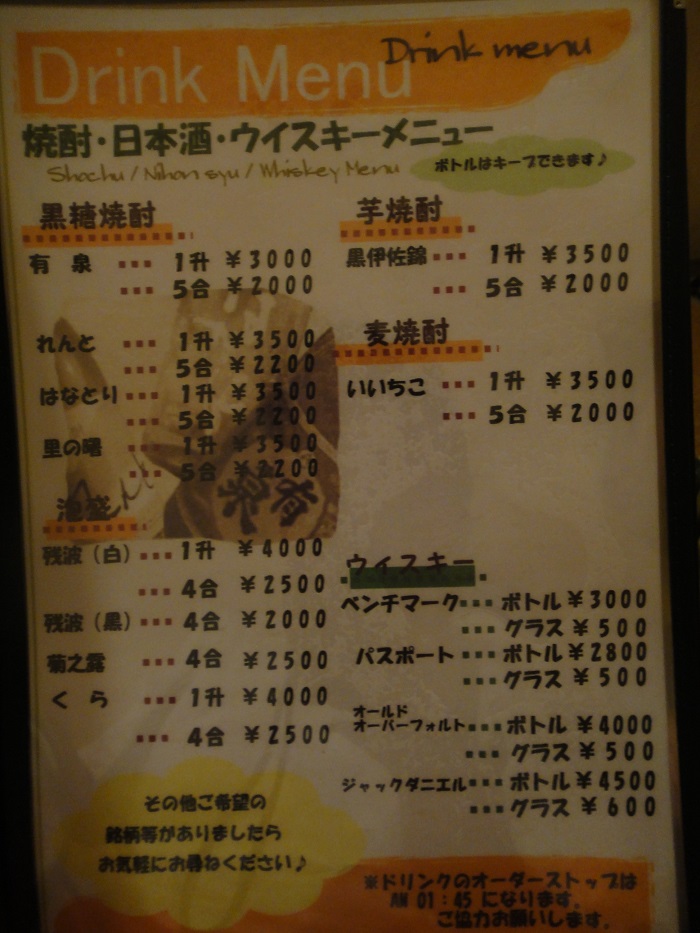 Drink Menu
Drink menu
焼酎・日本酒・ウイスキーメニュー
Shochu / Nihon syu / Whiskey Menu
ボトルはキープできます♪
黒糖焼酎
有 泉 ・・・ 1升 ¥3000
・・・ 5合 ¥2000
れんと ・・・ 1升 ¥3500
・・・ 5合 ¥2200
はなとり ・・・ 1升 ¥3500
・・・ 5合 ¥2200
里の曙 ・・・ 1升 ¥3500
・・・ 5合 ¥2200
有泉
泡盛
残波（白）・・・ 1升 ¥4000
・・・ 4合 ¥2500
残波（黒）・・・ 4合 ¥2000
菊之露 ・・・ 4合 ¥2500
くら ・・・ 1升 ¥4000
・・・ 4合 ¥2500
その他ご希望の
銘柄等がありましたら
お気軽にお尋ねください♪
芋焼酎
黒伊佐錦・・・ 1升 ¥3500
・・・ 5合 ¥2000
麦焼酎
いいちこ ・・・ 1升 ¥3500
・・・ 5合 ¥2000
ウイスキー
ベンチマーク・・・ ボトル ¥3000
・・・ グラス ¥500
パスポート ・・・ ボトル ¥2800
・・・ グラス ¥500
オールド
オーバーフォルト・・・ ボトル ¥4000
・・・ グラス ¥500
ジャックダニエル・・・ ボトル ¥4500
・・・ グラス ¥600
※ドリンクのオーダーストップは
AM 01：45 になります。
ご協力お願いします。